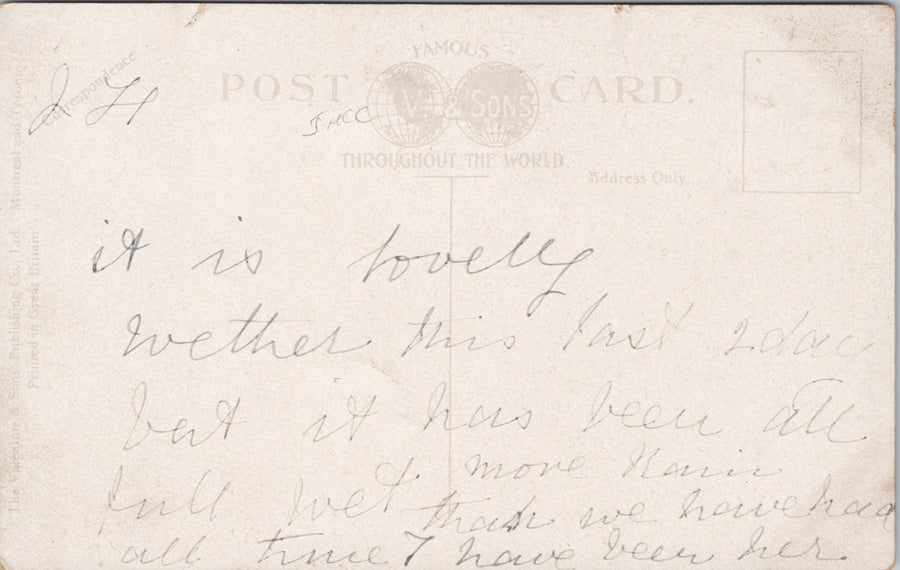 Correspondence
FAMOUS
POST CARD.
V & SONS
THROUGHOUT THE WORLD
Address Only.
The Valentine & Sons Publishing Co., Ltd. Montreal and Toronto
Printed in Great Britain
it is lovelly
wether this last 2 day
but it has been all
full wet more Rain
than we have had
all time I have been her